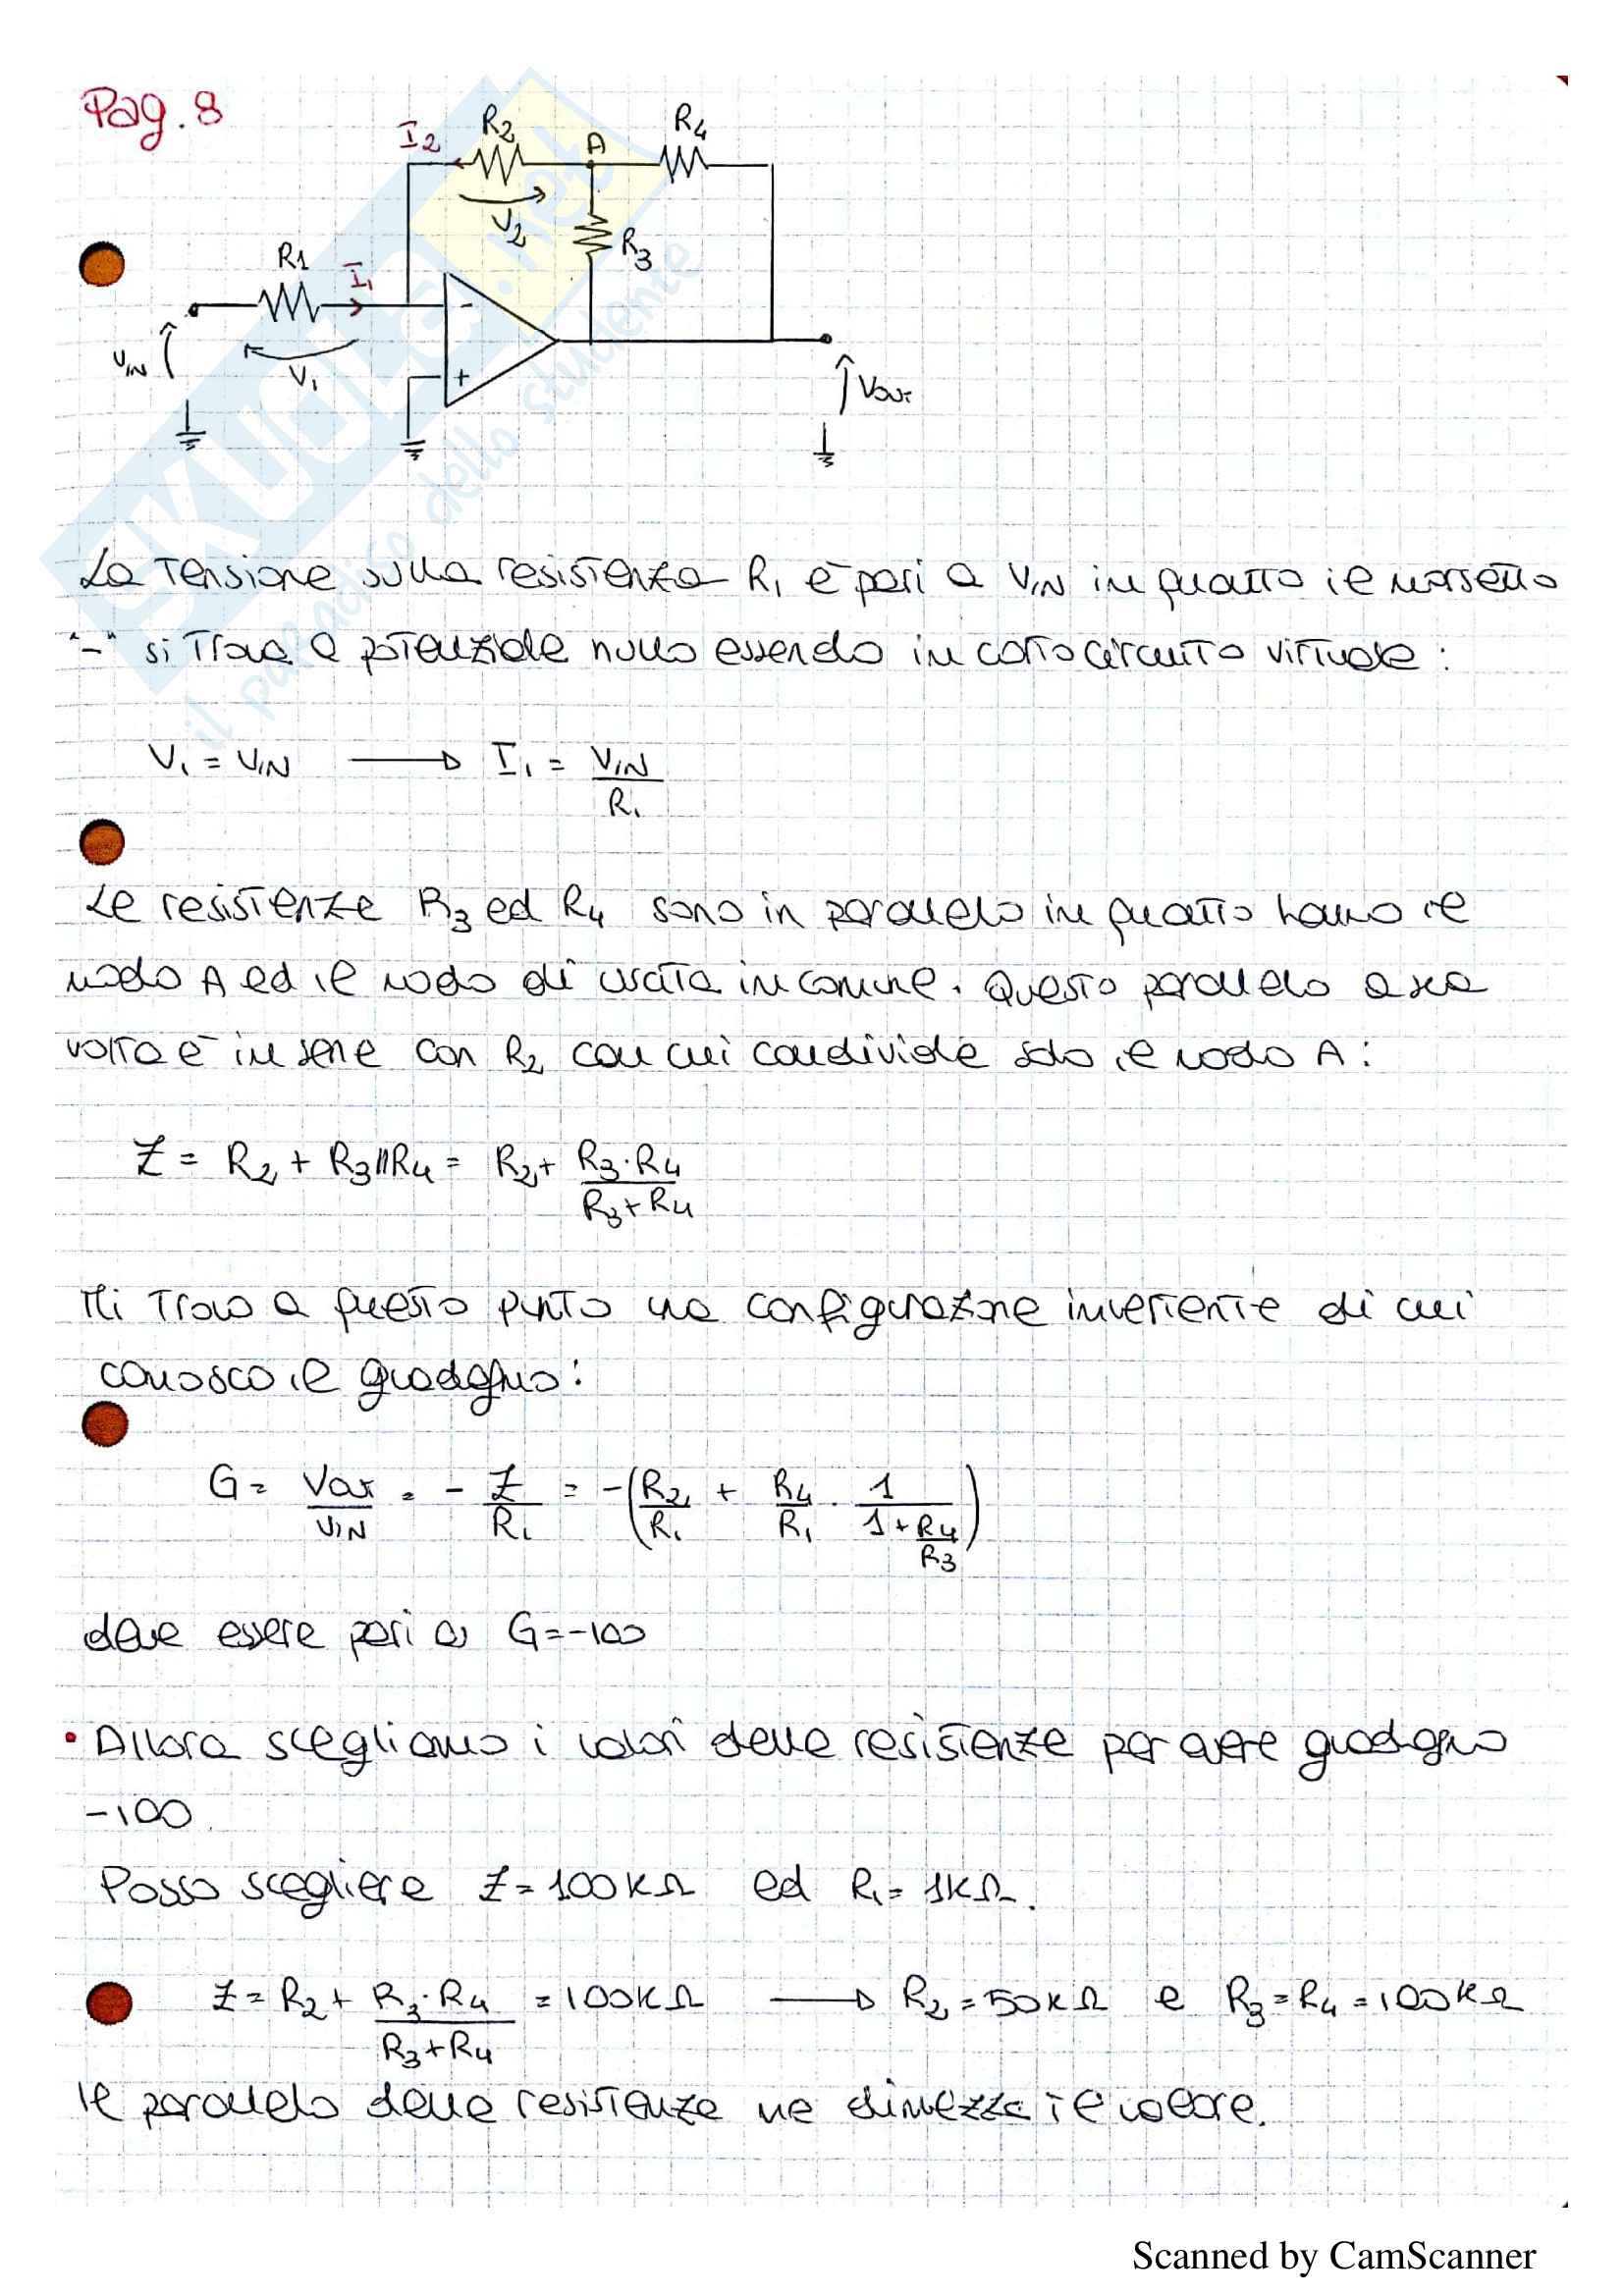 Pag. 8
I2 R2 A R4
V2
R3
R1 I1
-
VIN V1
+
VOUT
SKUOLA.net
il paradiso dello studente
La tensione sulla resistenza R1 è pari a VIN in quanto il morsetto
"-" si trova a potenziale nullo essendo in cortocircuito virtuale:
V1 = VIN → I1 = VIN / R1
Le resistenze R3 ed R4 sono in parallelo in quanto hanno il
nodo A ed il nodo di uscita in comune. Questo parallelo a sua
volta è in serie con R2 con cui condivide solo il nodo A:
Z = R2 + R3//R4 = R2 + R3·R4 / R3+R4
Mi trovo a questo punto una configurazione invertente di cui
conosco il guadagno:
G = VOUT / VIN = - Z / R1 = -(R2 / R1 + R4 / R1 · 1 / (1 + R4 / R3))
deve essere pari a G=-100
• Allora scegliamo i valori delle resistenze per avere guadagno
-100.
Posso scegliere Z=100KΩ ed R1=1KΩ.
Z = R2 + R3·R4 / R3+R4 = 100KΩ → R2=50KΩ e R3=R4=100KΩ
Il parallelo delle resistenze ne dimezza il valore.
Scanned by CamScanner